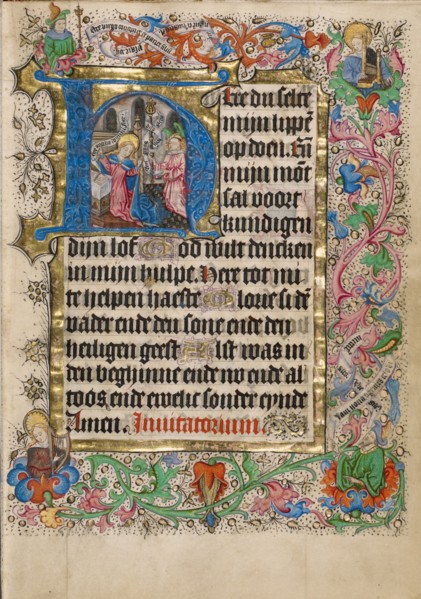 HEre du selte
mijn lippē
opdoen. Eñ
mijn mōt
sal voort
kundigen
dijn lof God wilt dencken
in mijn hulpe. Here tot mi
te helpen haeste Glorie si dē
vader ende den sone ende den
heiligen geest Alst was in
den beghinne ende nv ende al
toos ende ewelic sonder eynde
Amen. Inuitatorium.